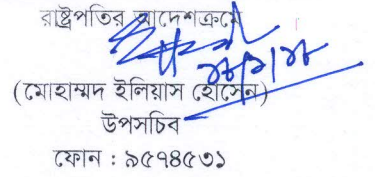 রাষ্ট্রপতির আদেশক্রমে
২৮/১/১৮
(মোহাম্মদ ইলিয়াস হোসেন)
উপসচিব
ফোন : ৯৫৭৪৫৩১